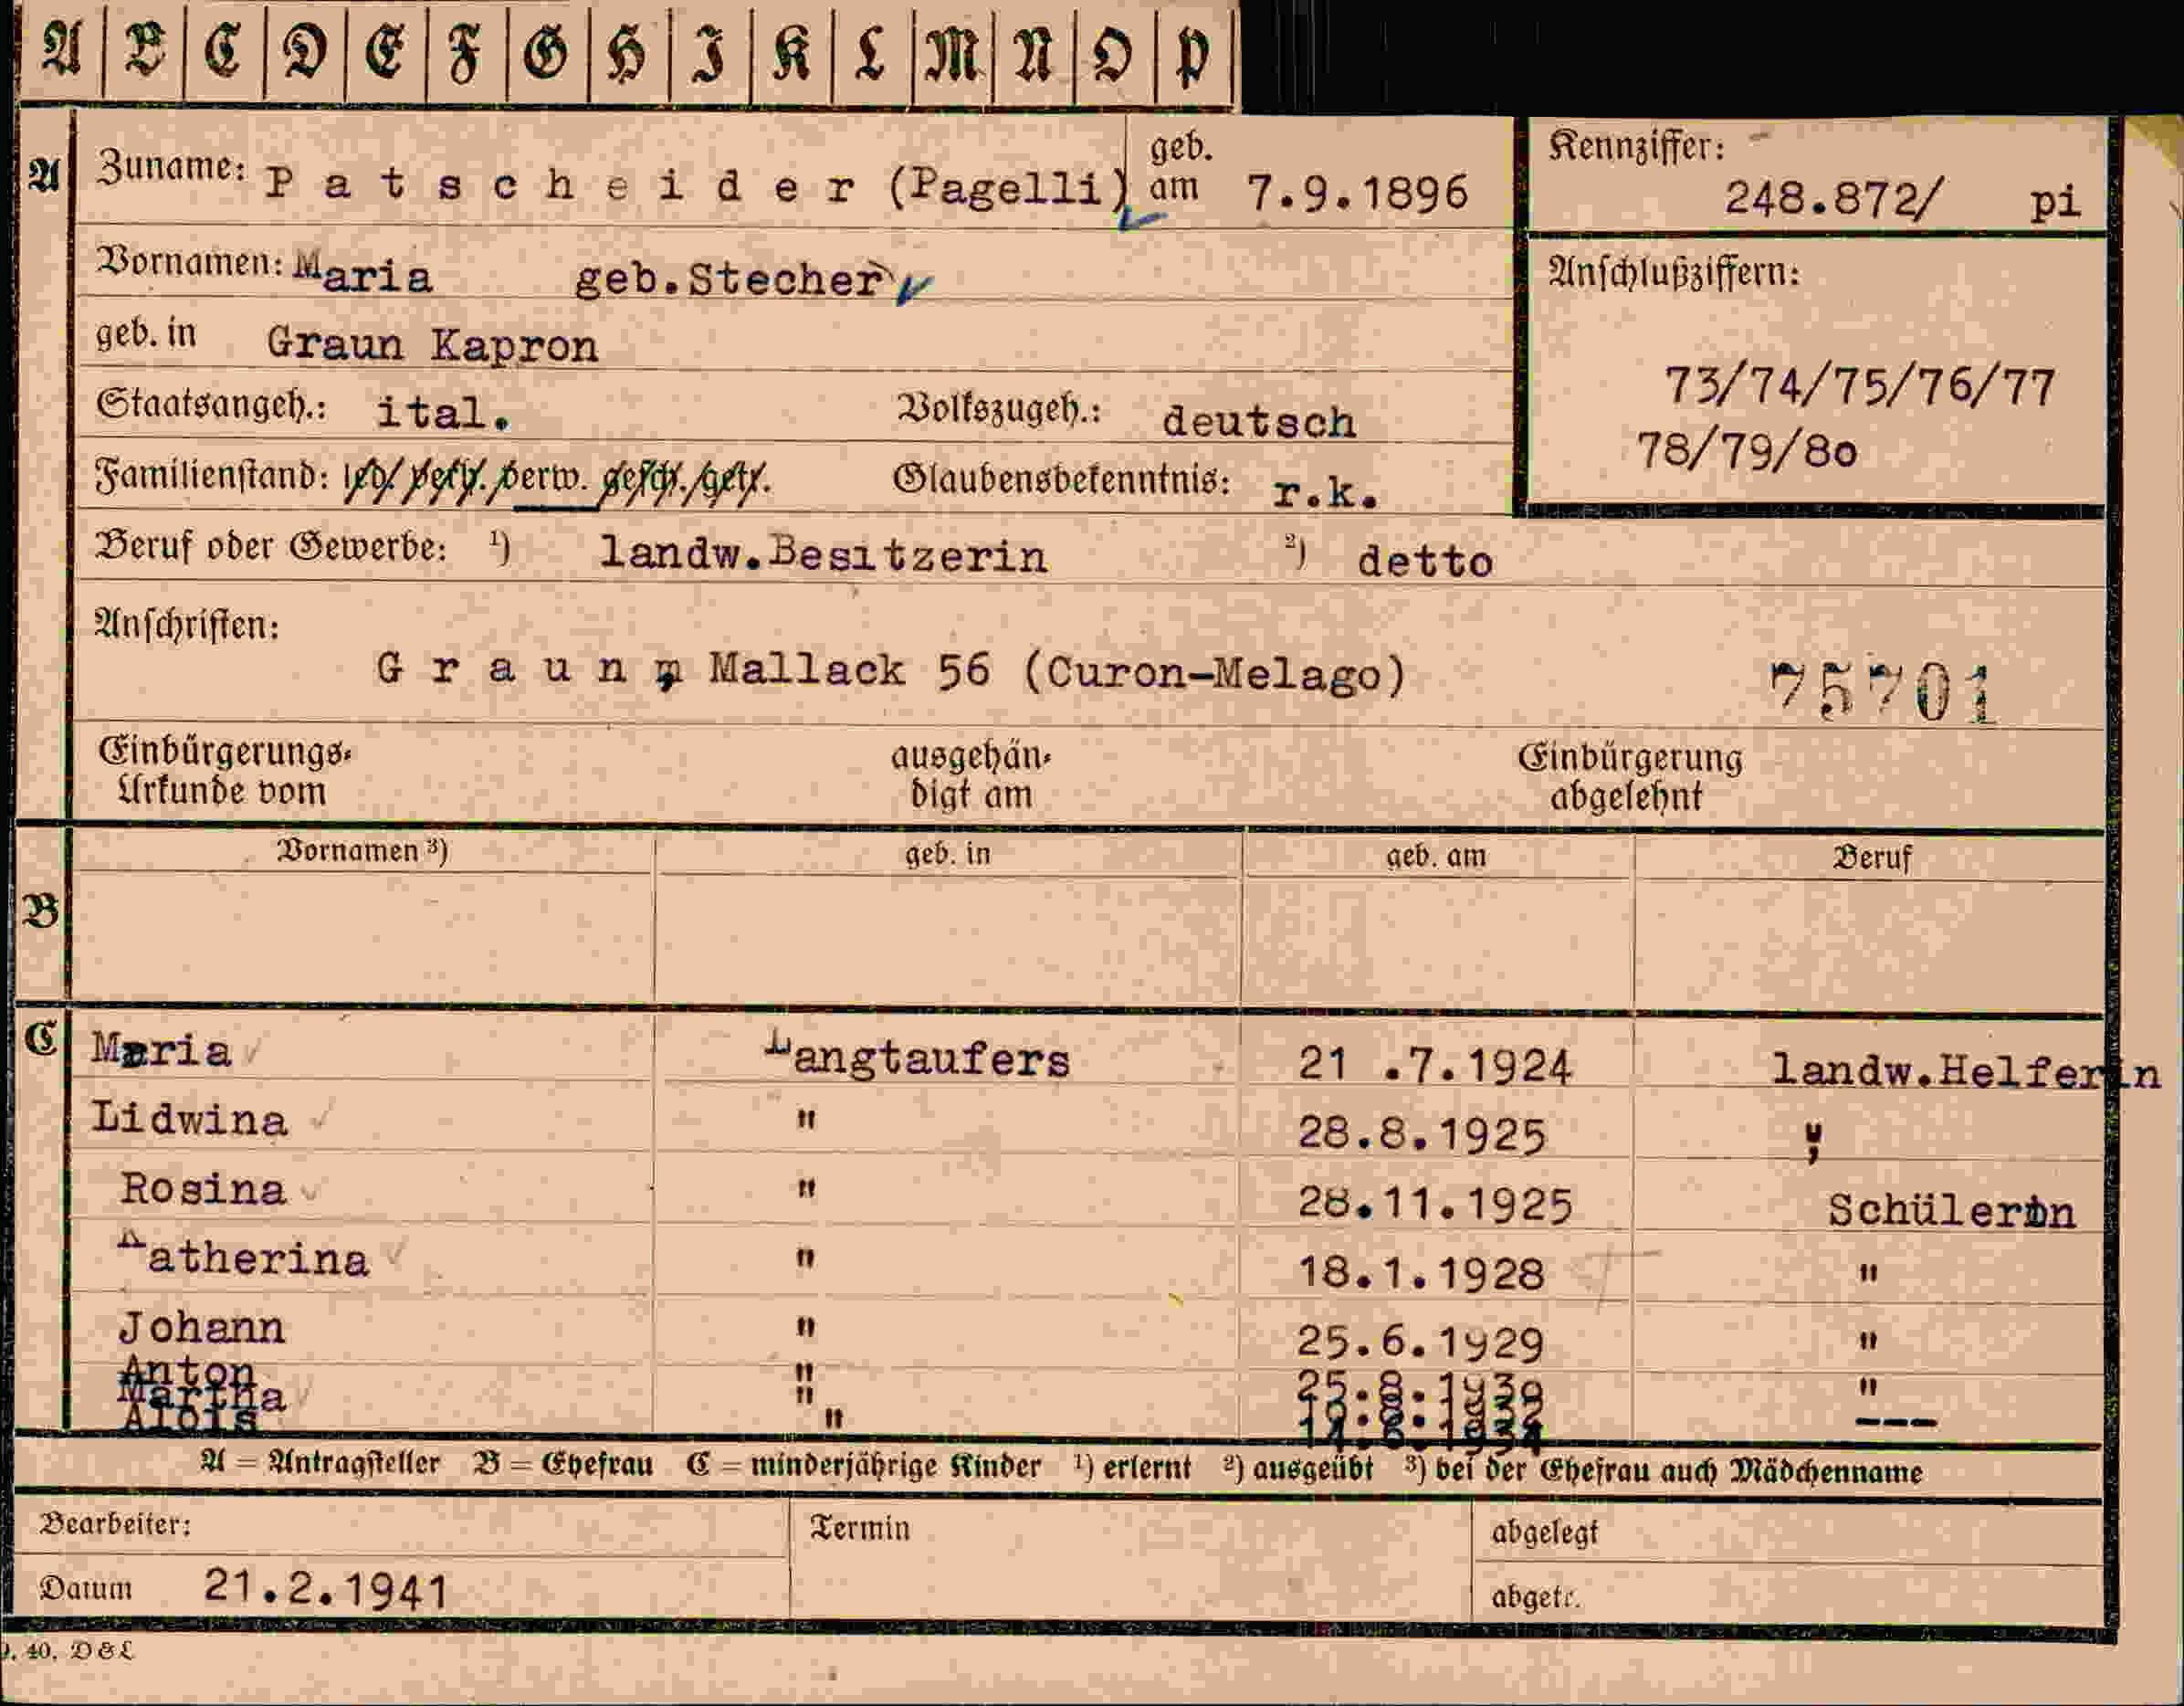 A B C D E F G H I K L M N O P
A Zuname: Patscheider (Pagelli) geb. am 7.9.1896
Kennziffer: 248.872/ pi
Vornamen: Maria geb.Stecher
Anschlußziffern:
geb. in Graun Kapron
73/74/75/76/77
Staatsangeh.: ital. Volkszugeh.: deutsch
78/79/80
Familienstand: led. verh. verw. gesch. getr. Glaubensbekenntnis: r.k.
Beruf oder Gewerbe: ¹) landw.Besitzerin ²) detto
Anschriften:
Graun, Mallack 56 (Curon-Melago) 75701
Einbürgerungs- ausgehän- Einbürgerung
Urkunde vom digt am abgelehnt
Vornamen ³) geb. in geb. am Beruf
B
C Maria Langtaufers 21 .7.1924 landw.Helferin
Lidwina " 28.8.1925 "
Rosina " 28.11.1925 Schülerin
Katherina " 18.1.1928 "
Johann " 25.6.1929 "
Anton " "
Martha " ---
Alois "
A = Antragsteller B = Ehefrau C = minderjährige Kinder ¹) erlernt ²) ausgeübt ³) bei der Ehefrau auch Mädchenname
Bearbeiter: Termin abgelegt
Datum 21.2.1941 abgetr.
40. D & L